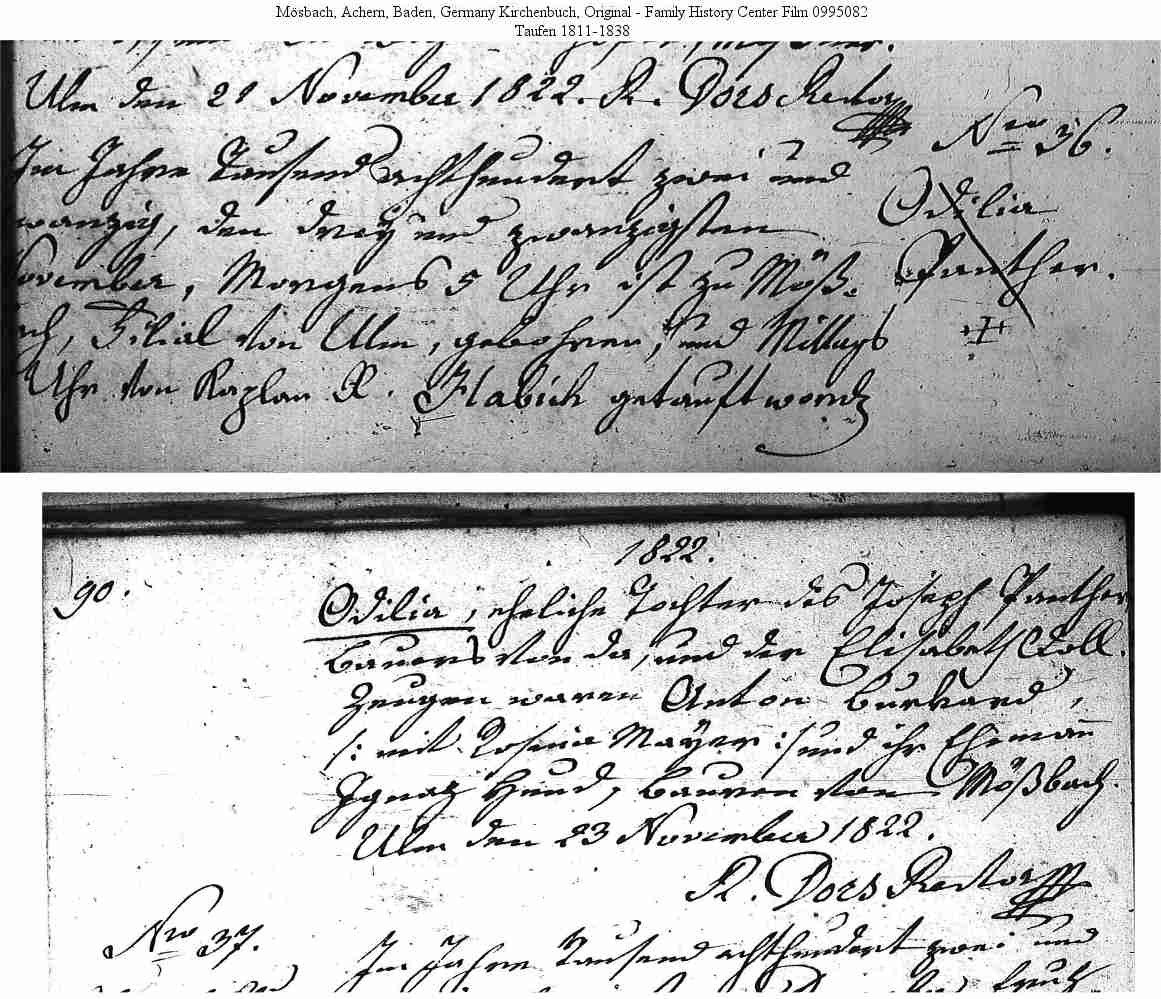 Mösbach, Achern, Baden, Germany Kirchenbuch, Original - Family History Center Film 0995082
Taufen 1811-1838
Ulm den 21 November 1822. R. Dors Rector
Nro 36.
Im Jahre Tausend achthundert zwei und
wanzig, den drey und zwanzigsten
Odilia
ovember, Morgens 5 Uhr ist zu Möß-
Panther.
ch, Filial von Ulm, gebohren, und Mittags
Uhr von Kaplan R. Habich getauft worden
1822.
90.
Odilia, eheliche Tochter des Joseph Panther
Bauers von da, und der Elisabeth Doll.
Zeugen waren Anton Burkard,
/: mit Rosina Mayer :/ und ihr Ehemann
Ignaz Hund, Bauren von Mößbach.
Ulm den 23 November 1822.
R. Dors Rector
Nro 37.
Im Jahre Tausend achthundert zwei und